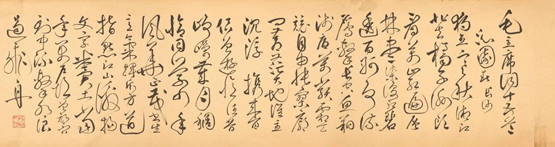 毛主席词十五首
沁园春 长沙
独立寒秋湘江
北去橘子洲头
看万山红遍层
林尽染漫江碧
透百舸争流
鹰击长空鱼翔
浅底万类霜天
竞自由怅寥廓
问苍茫大地谁主
沉浮 携来百
侣曾游忆往昔
峥嵘岁月稠
恰同学少年
风华正茂书生
意气挥斥方遒
指点江山激扬
文字粪土当
年万户侯曾记否
到中流击水浪
遏飞舟